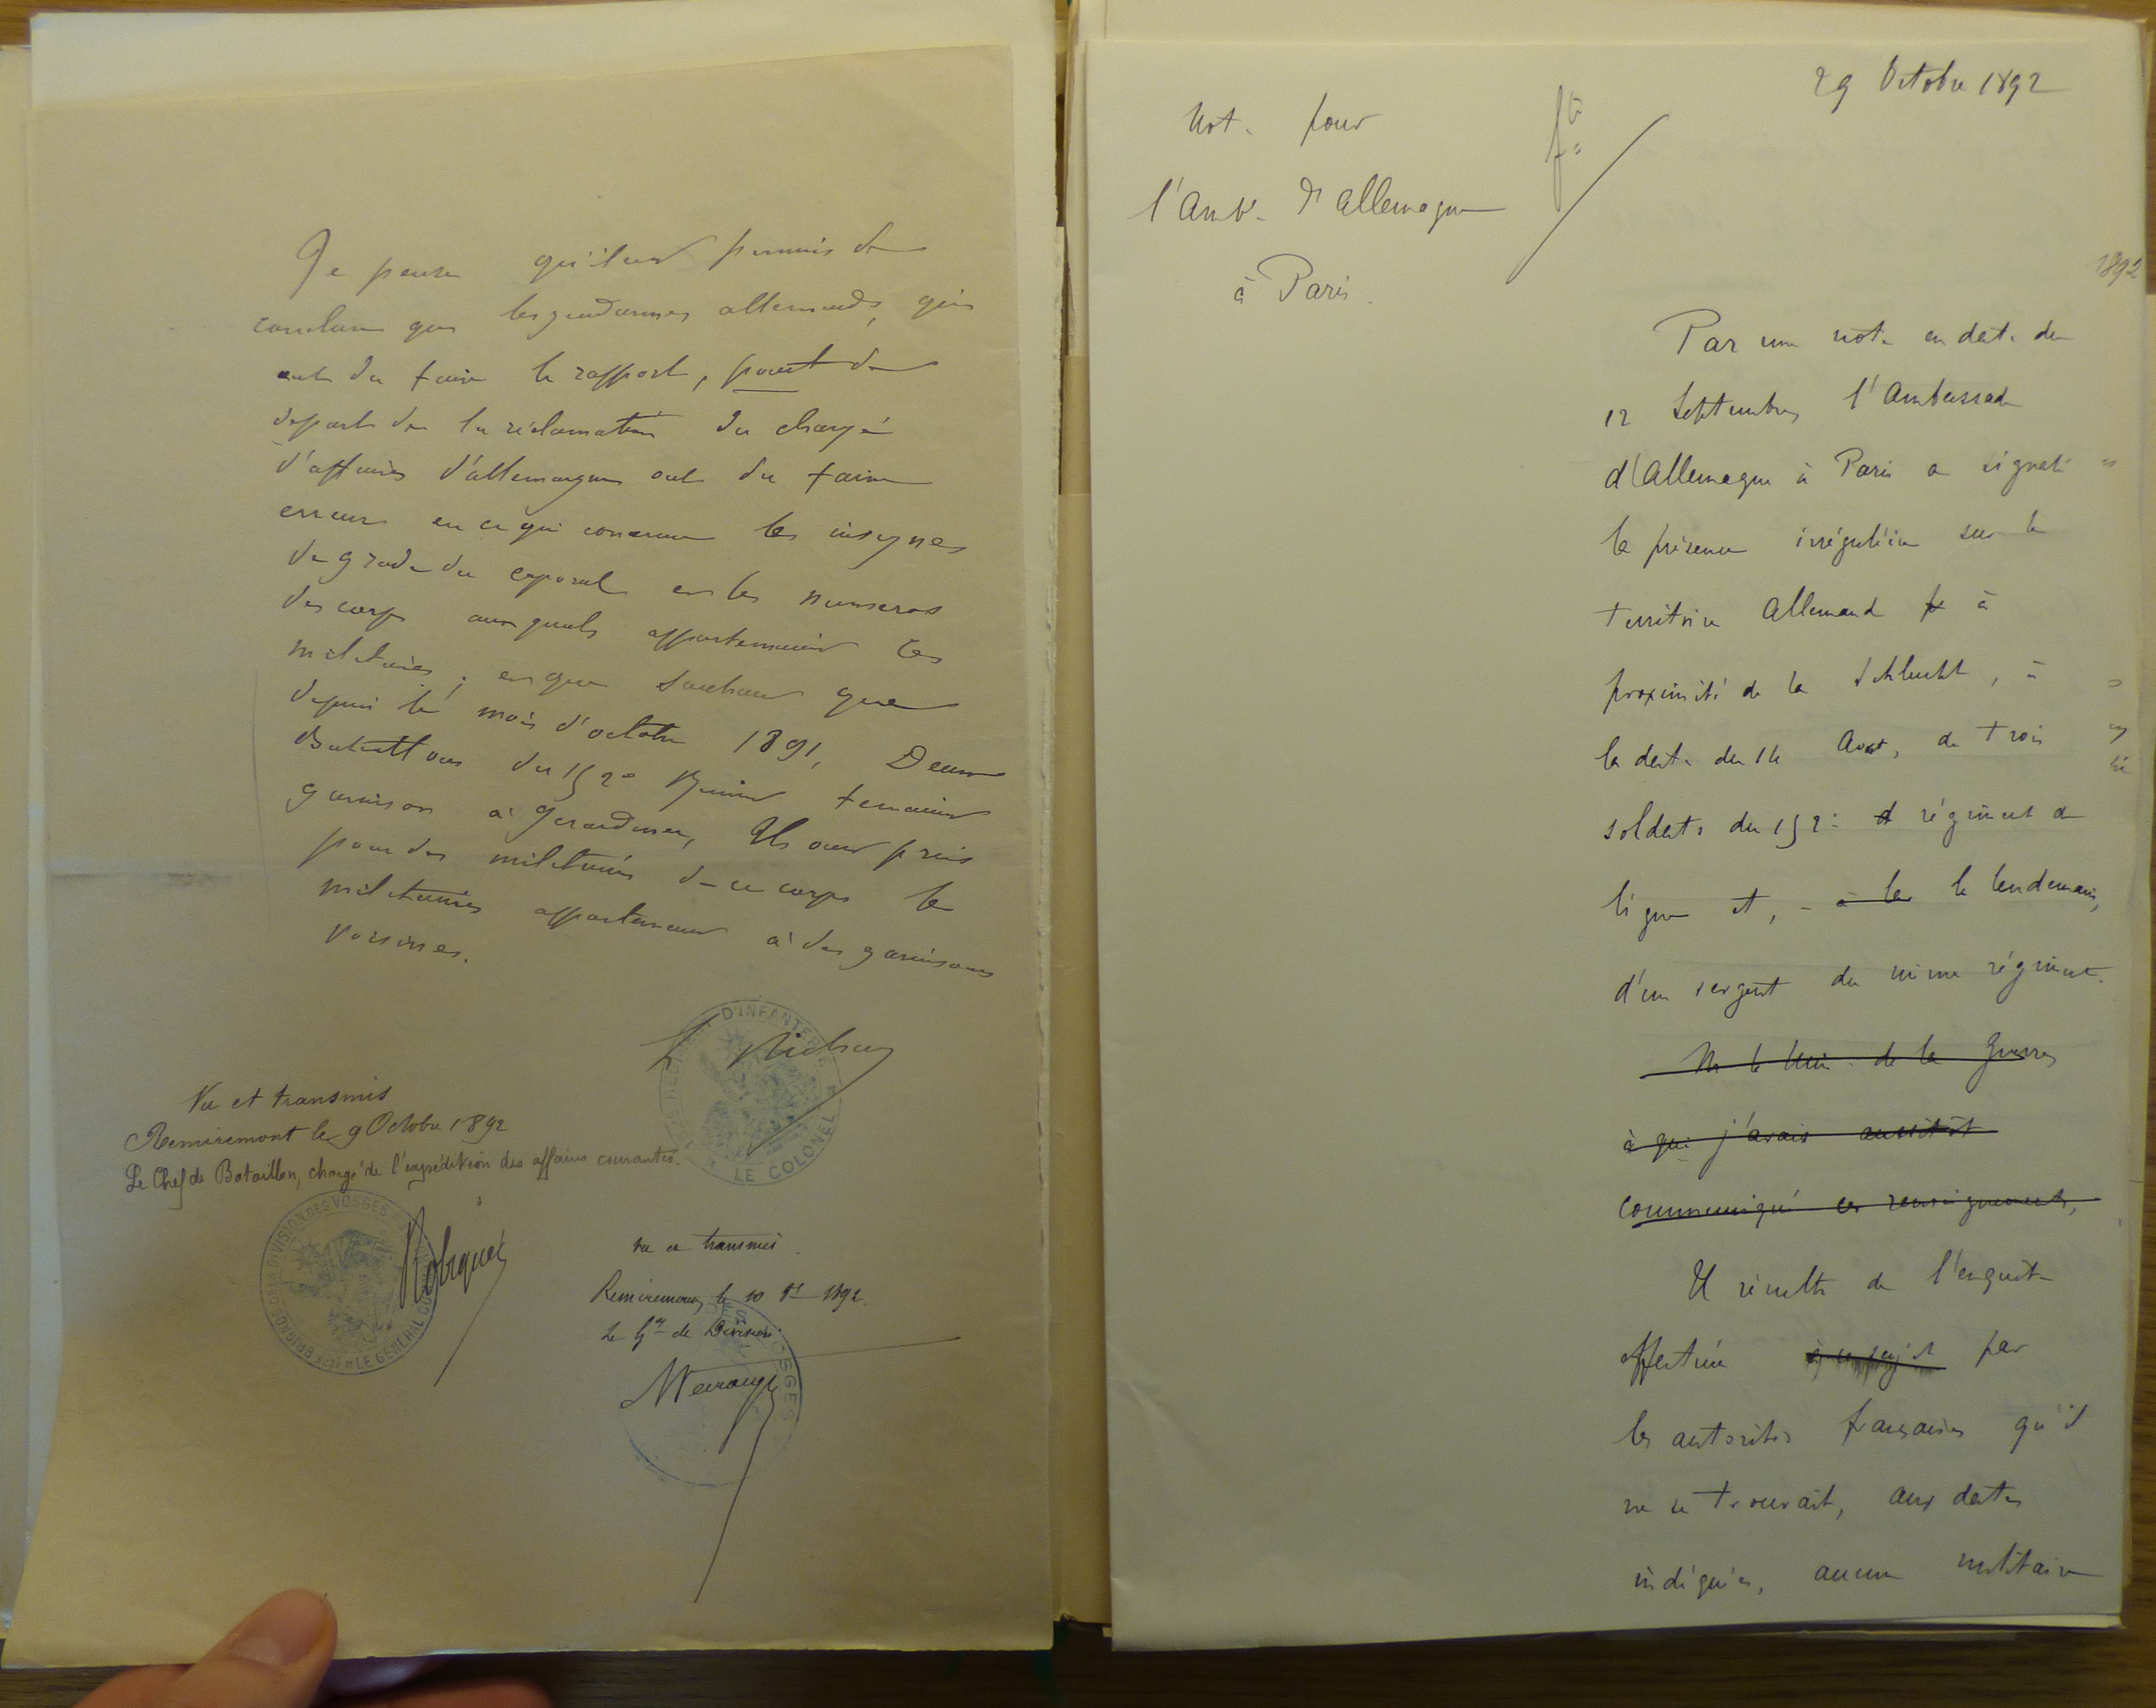 Je pense qu'il est permis de
conclure que les gendarmes allemands, qui
ont du faire le rapport, point de
départ de la réclamation du chargé
d'affaires d'allemagne ont du faire
erreur en ce qui concerne les insignes
de grade du caporal et les numeros
des corps auxquels appartenaient les
militaires; et que sachant que
depuis le mois d'octobre 1891, Deux
Bataillons du 152e tenaient
garnison à Gerardmer, Ils ont pris
pour des militaires de ce corps les
militaires appartenant à des garnisons
voisines.
D'INFANTERIE
LE COLONEL
Vu et transmis
Remiremont le 9 Octobre 1892
Le Chef de Bataillon, chargé de l'expédition des affaires courantes.
BRIGADE DE LA DIVISION DES VOSGES
LE GÉNÉRAL
Robiquet
Vu et transmis
Remiremont le 10 8bre 1892.
Le Gal de Division
VOSGES
29 Octobre 1892
Not. pour
l'Amb. d'Allemagne
à Paris.
1892
Par une note en date du
12 Septembre, l'Ambassade
d'Allemagne à Paris a signalé
la présence irrégulière sur le
territoire Allemand à
proximité de la Schlucht, à
la date du 14 Aout, de trois
soldats du 152e régiment de
ligne et, à le le lendemain,
d'un sergent du même régiment.
M le Min. de la Guerre
à qui j'avais aussitôt
communiqué ces renseignements,
Il résulte de l'enquête
effectuée à ce sujet par
les autorités françaises qu'il
ne se trouvait, aux dates
indiquées, aucun militaire